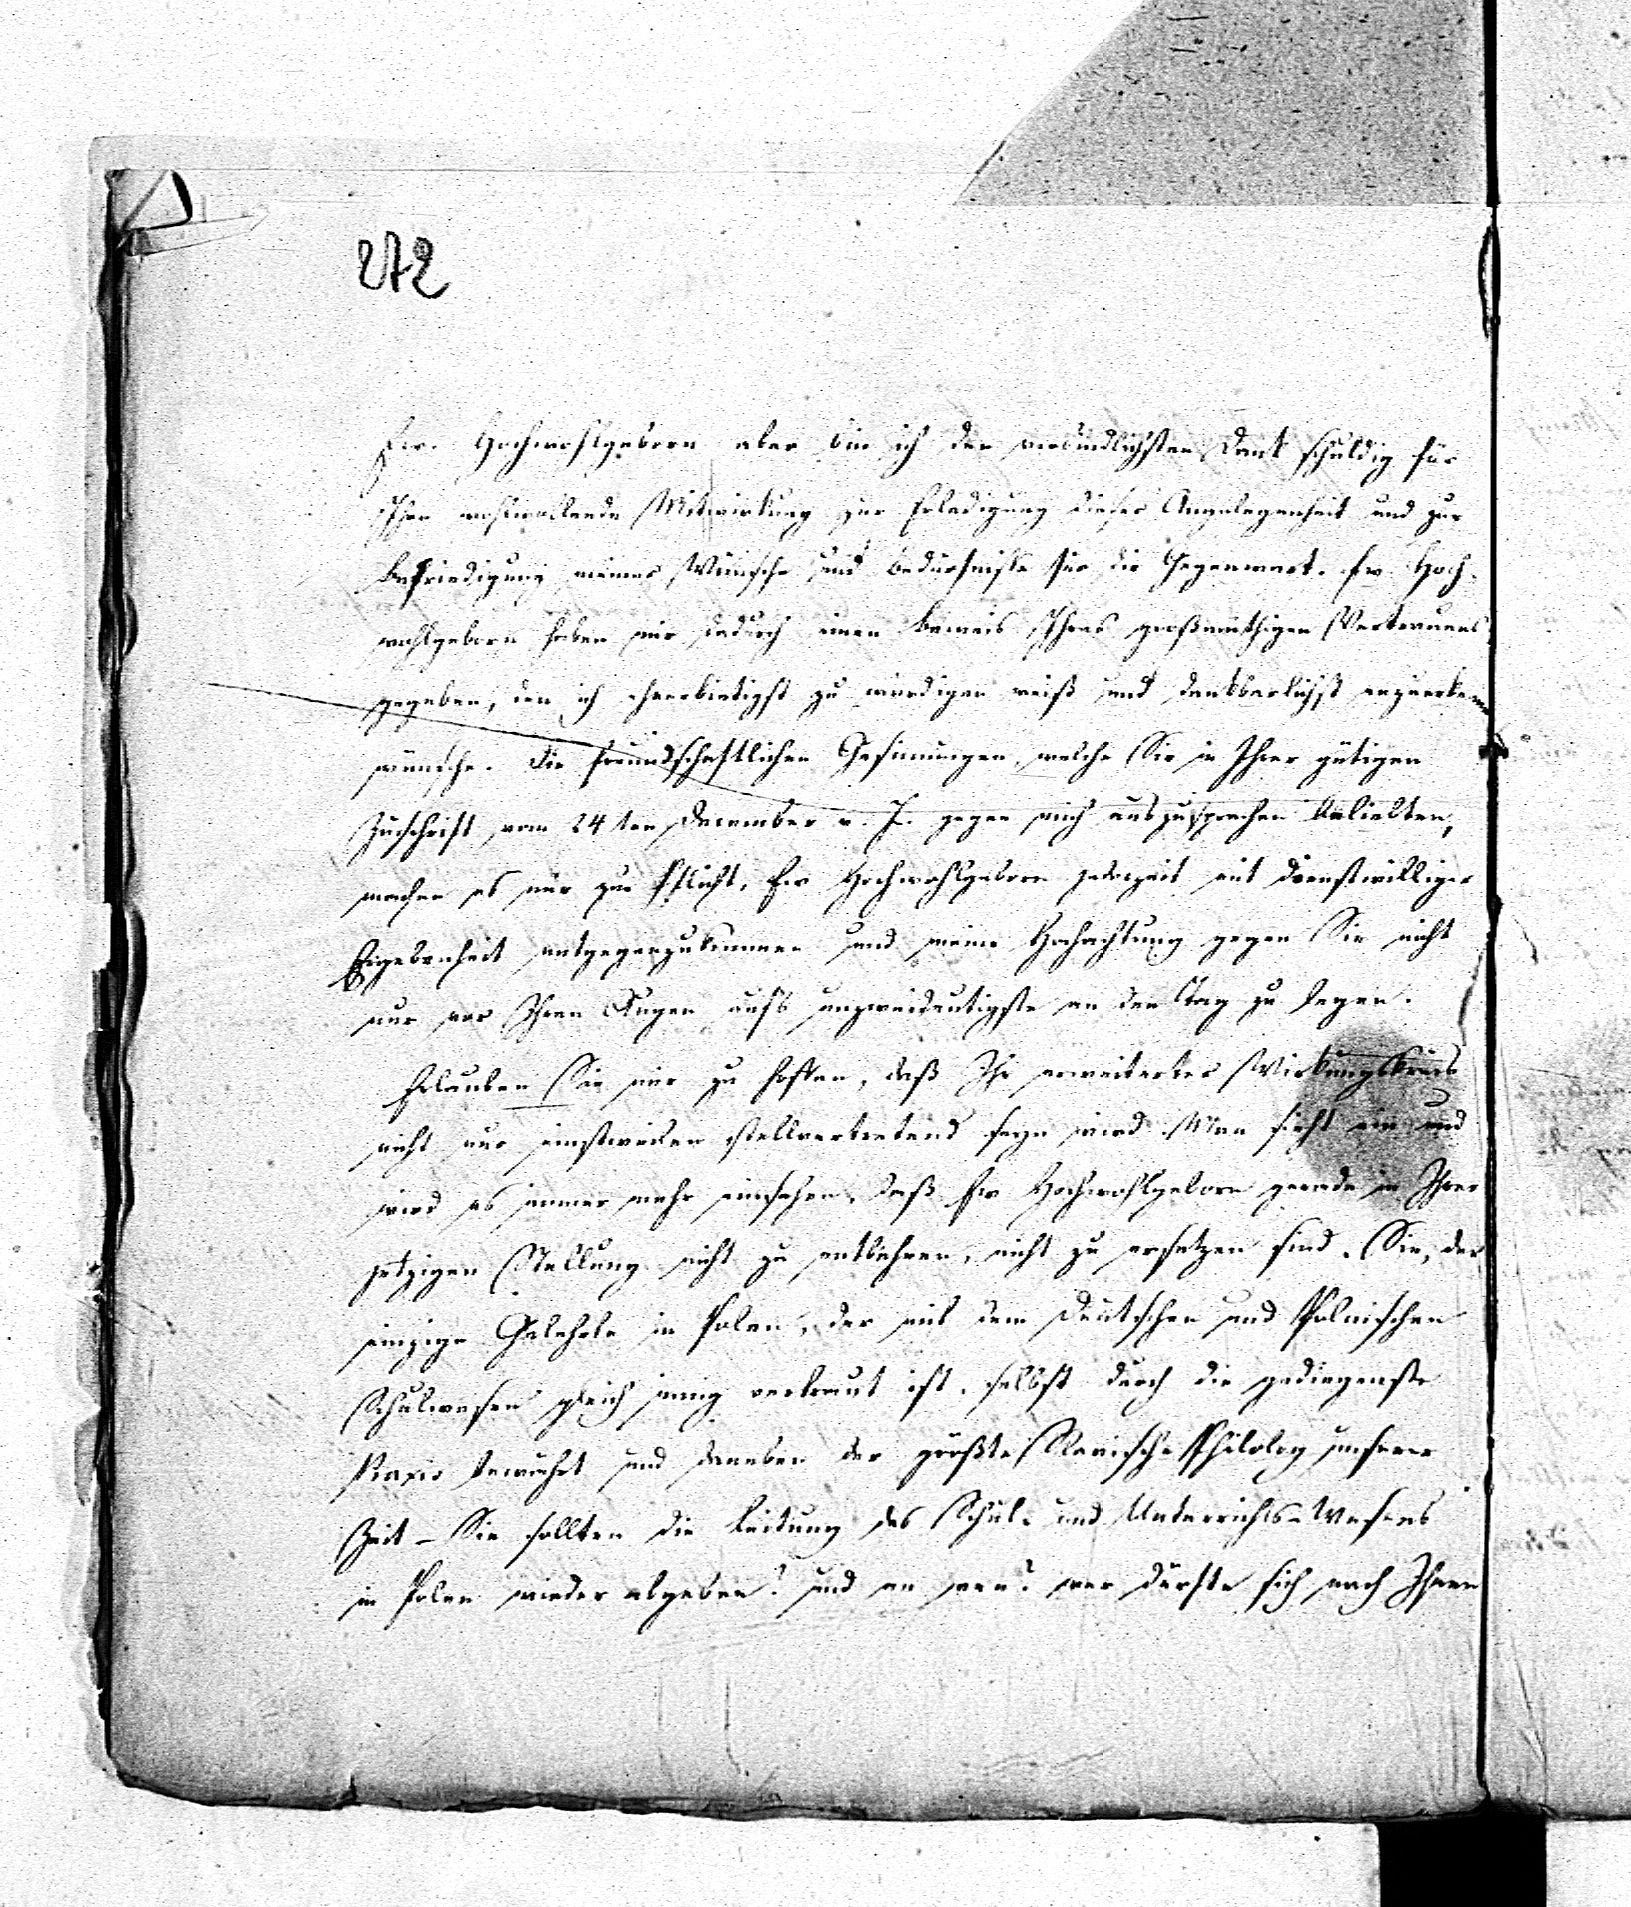 272
Ew. Hochwohlgeborn aber bin ich den verbindlichsten Dank schuldig für
Ihre wohlwollende Mitwirkung zur Erledigung dieser Angelegenheit und zur
Befriedigung meiner Wünsche und Bedürfnisse für die Gegenwart. Ew Hoch-
wohlgeborn haben mir dadurch einen Beweis Ihres großmüthigen Vertrauens
gegeben, den ich ehrerbietigst zu würdigen weiß und dankbarlichst anzuerkennen
wünsche. Die freundschaftlichen Gesinnungen, welche Sie in Ihrer gütigen
Zuschrift vom 24ten December v. J. gegen mich auszusprechen beliebten,
machen es mir zur Pflicht, Ew Hochwohlgeborn jederzeit mit dienstwilliger
Ergebenheit entgegenzukommen und meine Hochachtung gegen Sie nicht
nur vor Ihren Augen aufs unzweideutigste an den Tag zu legen.
Erlauben Sie mir zu hoffen, daß Ihr erweiterter Wirkungskreis
nicht nur einstweilen stellvertretend seyn wird. Man sieht ein und
wird es immer mehr einsehen, daß Ew Hochwohlgeborn gerade in Ihrer
jetzigen Stellung nicht zu entbehren, nicht zu ersetzen sind. Sie, der
einzige Gelehrte in Polen, der mit dem Deutschen und Polnischen
Schulwesen gleich innig vertraut ist, selbst durch die gediegenste
Praxis bewährt und daneben der größte Slavische Philolog unserer
Zeit – Sie sollten die Leitung des Schul- und Unterrichts-Wesens
in Polen wieder abgeben? und an wen? wer dürfte sich nach Ihnen